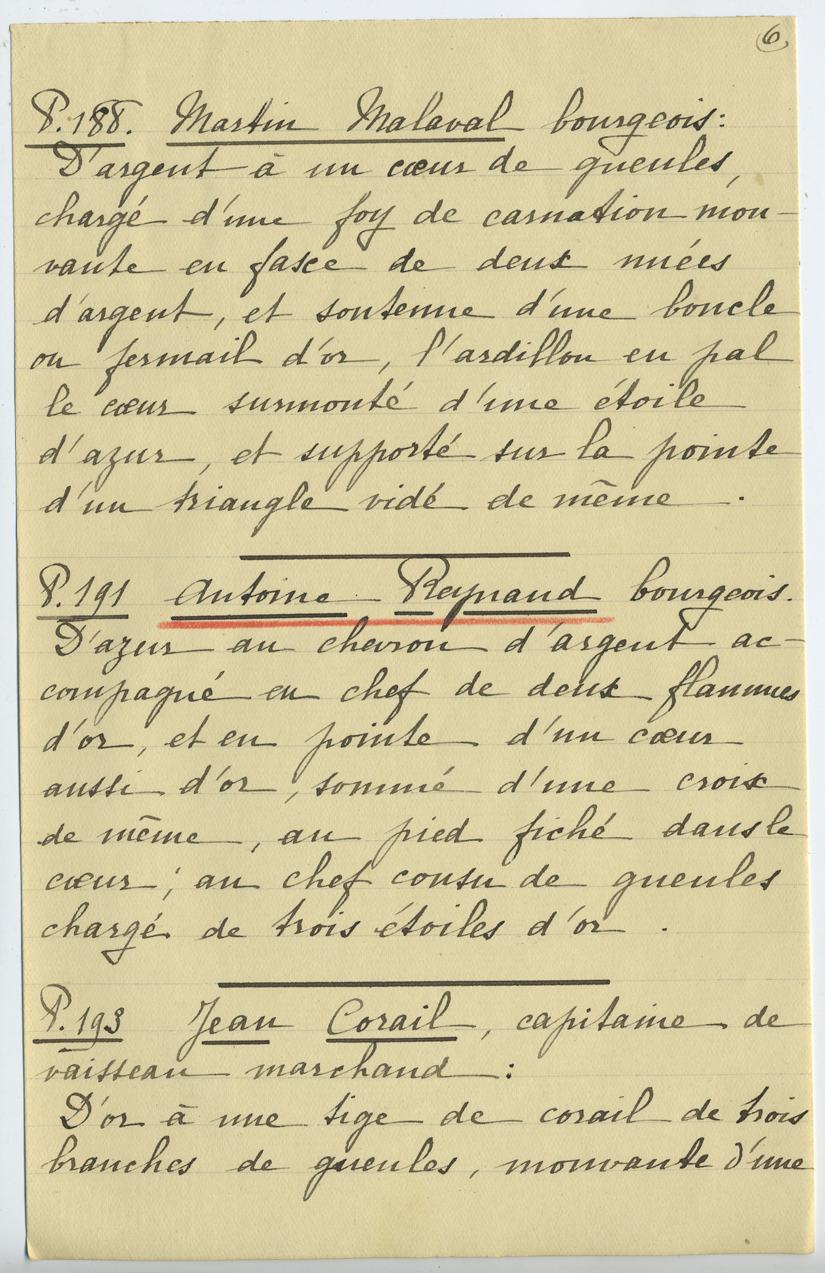 6
P. 188. Martin Malaval bourgeois:
D'argent à un cœur de gueules,
chargé d'une foy de carnation mou-
vante en fasce de deux nuées
d'argent, et soutenue d'une boucle
ou fermail d'or, l'ardillon en pal
le cœur surmonté d'une étoile
d'azur, et supporté sur la pointe
d'un triangle vidé de même.
P. 191 Antoine Reynaud bourgeois.
D'azur au chevron d'argent ac-
compagné en chef de deux flammes
d'or, et en pointe d'un cœur
aussi d'or, sommé d'une croix
de même, au pied fiché dans le
cœur; au chef cousu de gueules
chargé de trois étoiles d'or.
P. 193 Jean Corail, capitaine de
vaisseau marchand:
D'or à une tige de corail de trois
branches de gueules, mouvante d'une